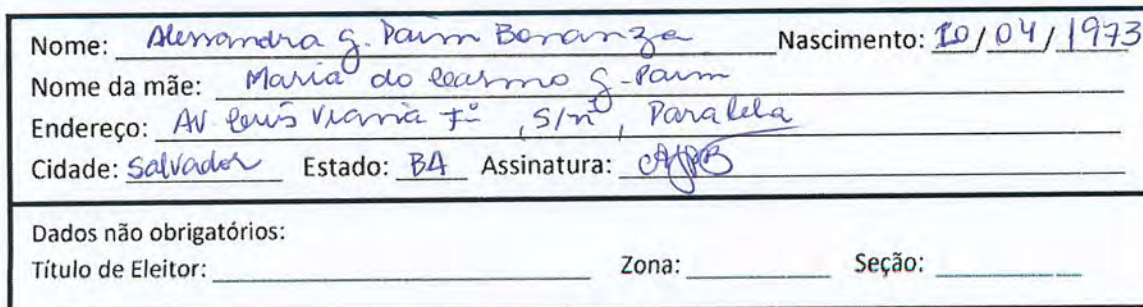 Nome: Alessandra G. Paim Bonanza Nascimento: 10/04/1973
Nome da mãe: Maria do Carmo G. Paim
Endereço: AV Luís Viana Fº, S/nº, Paralela
Cidade: Salvador Estado: BA Assinatura:
Dados não obrigatórios:
Título de Eleitor: Zona: Seção: